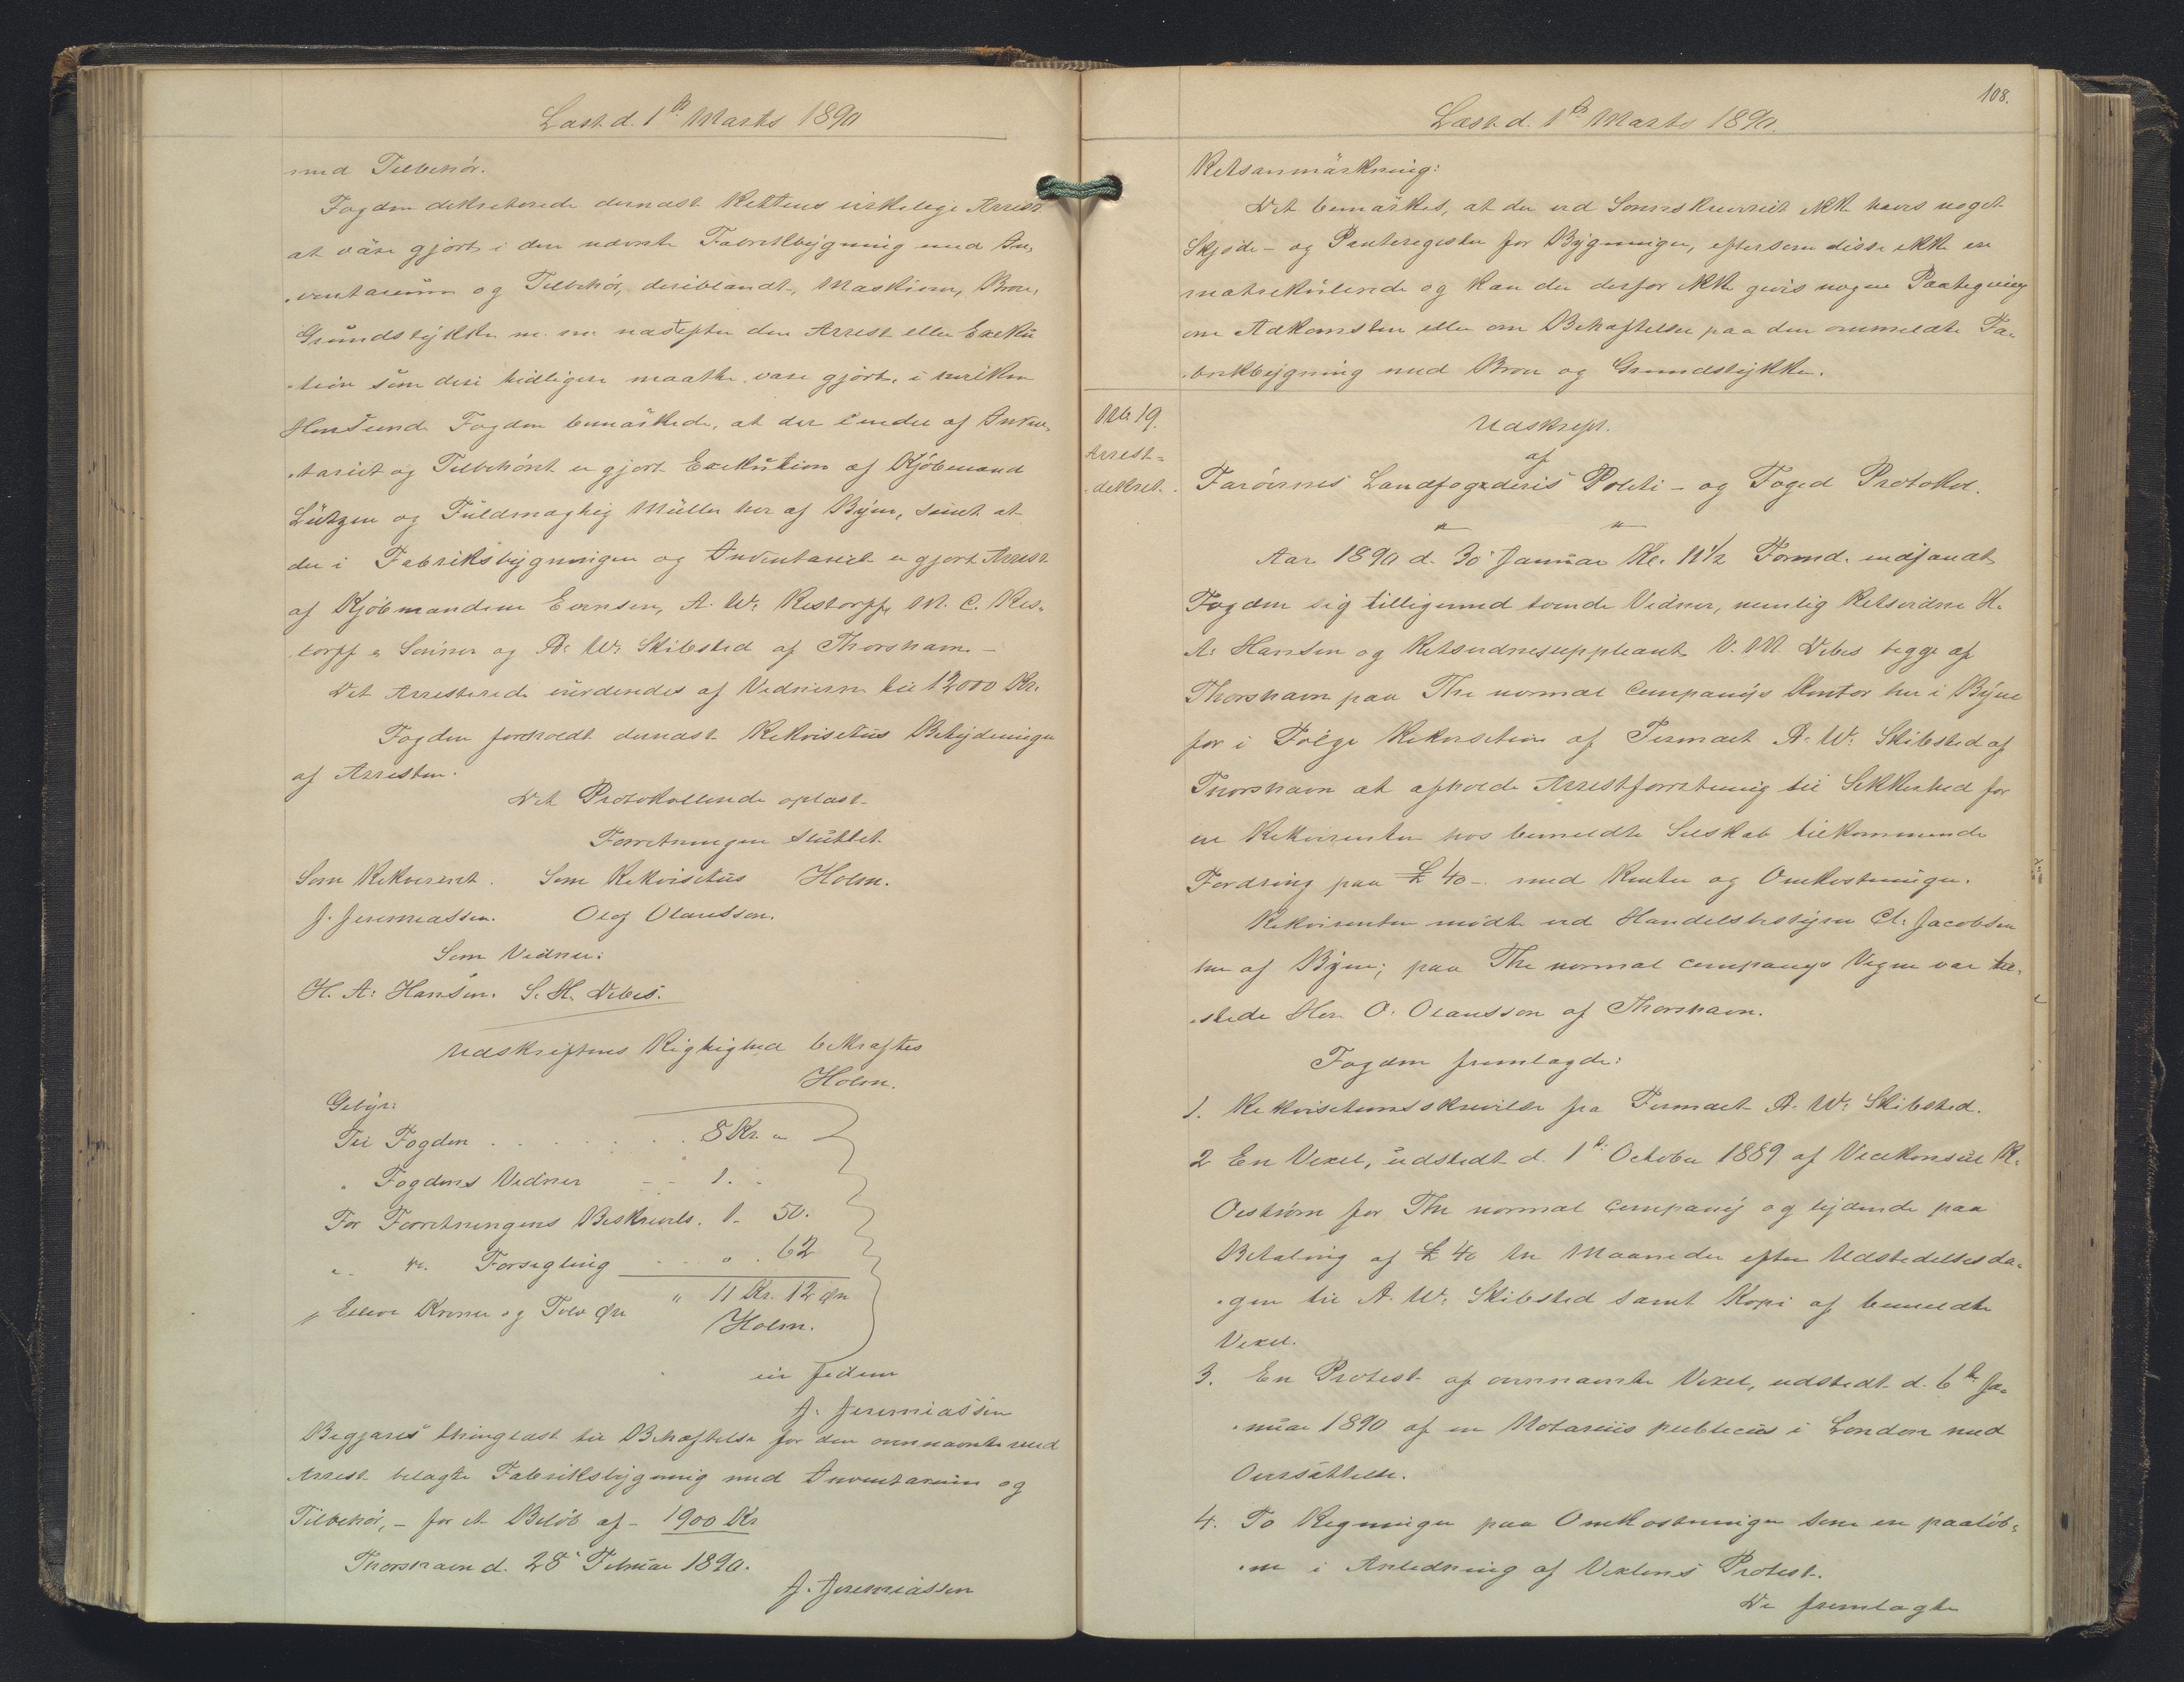 Læst d. 1ste Marts 1890
med Tilbehör.
Fogden dekreterede dernæst Rettens virkelige Arrest
at være gjort i den nævnte Fabrikbygning med In-
ventarium og Tilbehör, deriblandt, Maskiner, Broer,
Grundstykke m. m. næstefter den Arrest eller Exeku
tion som deri tidligere maatte være gjort, i hvilken
Henseende Fogden bemärkede, at der i endel af Inven-
tariet og Tilbehöret er gjort Exekution af Kjöbmand
Lützen og Fuldmægtig Müller her af Byen, samt at
der i Fabriksbygningen og Inventariet er gjort Arrest
af Kjöbmændene Evensen, A. W. Restorff, M. C. Res-
torff & Sönner og A. W. Skibsted af Thorshavn –
Det Arresterede vurderedes af Vidnerne til 12000 Kr.
Fogden foreholdt dernæst Rekvisitus Betydningen
af Arresten.
Det Protokollerede oplæst.
Forretningen sluttet.
Som Rekvirent. Som Rekvisitus Holm.
J. Jeremiassen. Olof Olaussen.
Som Vidner:
H. A. Hansen. S. H. Debes.
Udskriftens Rigtighed bekræftes
Holm.
Gebyr:
Til Fogden . . . . . . 8 Kr. "
" Fogdens Vidner - - 1. -
For Forretningens Beskrivels. 1. 50.
" " Forsegling " . 62
" Elleve Kroner og Tolv Øre " 11 Kr. 12 Øre
Holm.
in fidem
J. Jeremiassen
Begjæres thinglæst til Behæftelse for den ovennævnte med
Arrest belagte Fabriksbygning med Inventarium og
Tilbehör, – for et Belöb af – 1900 Kr
Thorshavn d. 28' Februar 1890.
J. Jeremiassen
108.
Læst d. 1ste Marts 1890.
Retsanmärkning:
Det bemärkes, at der ved Sorenskriveriet ikke haves noget
Skjöde- og Panteregister for Bygninger, eftersom disse ikke ere
matrikulerede og kan der derfor ikke gives nogen Paategning
om Adkomsten eller om Behæftelser paa den ommeldte Fa-
brikbygning med Broer og Grundstykke.
No 19.
Arrest-
dekret.
Udskrift
af
Færöernes Landfogderis Politi- og Foged Protokol.
Aar 1890 d. 30' Januar Kl. 11½ Formd. indfandt
Fogden sig tilligemed tvende Vidner, nemlig Retsvidne H.
A. Hansen og Retsvidnesuppleant V. M. Debes begge af
Thorshavn paa The normal Companys Kontor her i Byen
for i Fölge Rekvisition af Firmaet A. W. Skibsted af
Thorshavn at afholde Arrestforretning til Sikkerhed for
en Rekvirenten hos bemeldte Selskab tilkommende
Fordring paa £ 40 –. med Renter og Omkostninger.
Rekvirenten mödte ved Handelsbestyrer Cl. Jacobsen
her af Byen; paa The normal companys Vegne var til-
stede Herr O. Olaussen af Thorshavn.
Fogden fremlagde:
1. Rekvisitionsskrivelse fra Firmaet A. W. Skibsted.
2 En Vexel, udstedt d. 1st October 1889 af Vicekonsul R.
Oeström for The normal Company og lydende paa
Betaling af £ 40 tre Maaneder efter Udstedelsesda-
gen til A. W. Skibsted samt Kopi af bemeldte
Vexel.
3. En Protest af ovennævnte Vexel, udstedt d. 6te Ja-
nuar 1890 af en Notarius publicus i London med
Oversættelse.
4. To Regninger paa Omkostninger som ere paalöb-
ne i Anledning af Vexlens Protest.
De fremlagte